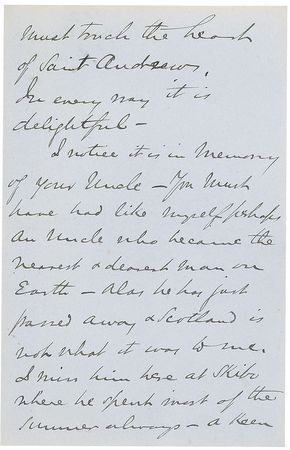 Must touch the heart
of Saint Andrews.
In every way it is
delightful —
I notice it is in Memory
of your Uncle — You must
have had like myself perhaps
an Uncle who became the
nearest & dearest man on
Earth — Alas he has just
passed away & Scotland is
not what it was to me.
I miss him here at Skibo
where he spent most of the
summer always — a keen